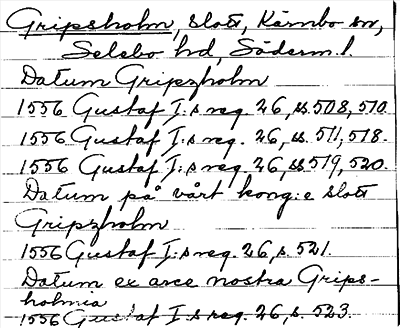 Gripsholm, slott, Kärnbo sn,
Selebo hd, Söderm. l.
Datum Gripzholm
1556 Gustaf I:s reg. 26, ss. 508, 510.
1556 Gustaf I:s reg. 26, ss. 511, 518.
1556 Gustaf I:s reg. 26, ss 519, 520.
Datum på vårt kong:e slott
Gripzholm
1556 Gustaf I:s reg. 26, s. 521.
Datum ex arce nostra Grips-
holmia
1556 Gustaf I.s reg. 26, s. 523.